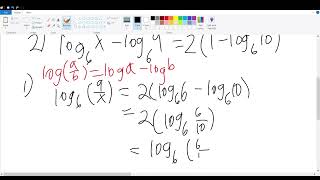 2) log₆X − log₆4 = 2(1 − log₆10)
log(a/b) = loga − logb
1) log₆(9/x) = 2(log₆6 − log₆10)
= 2(log₆ 6/10)
= log₆(6/1